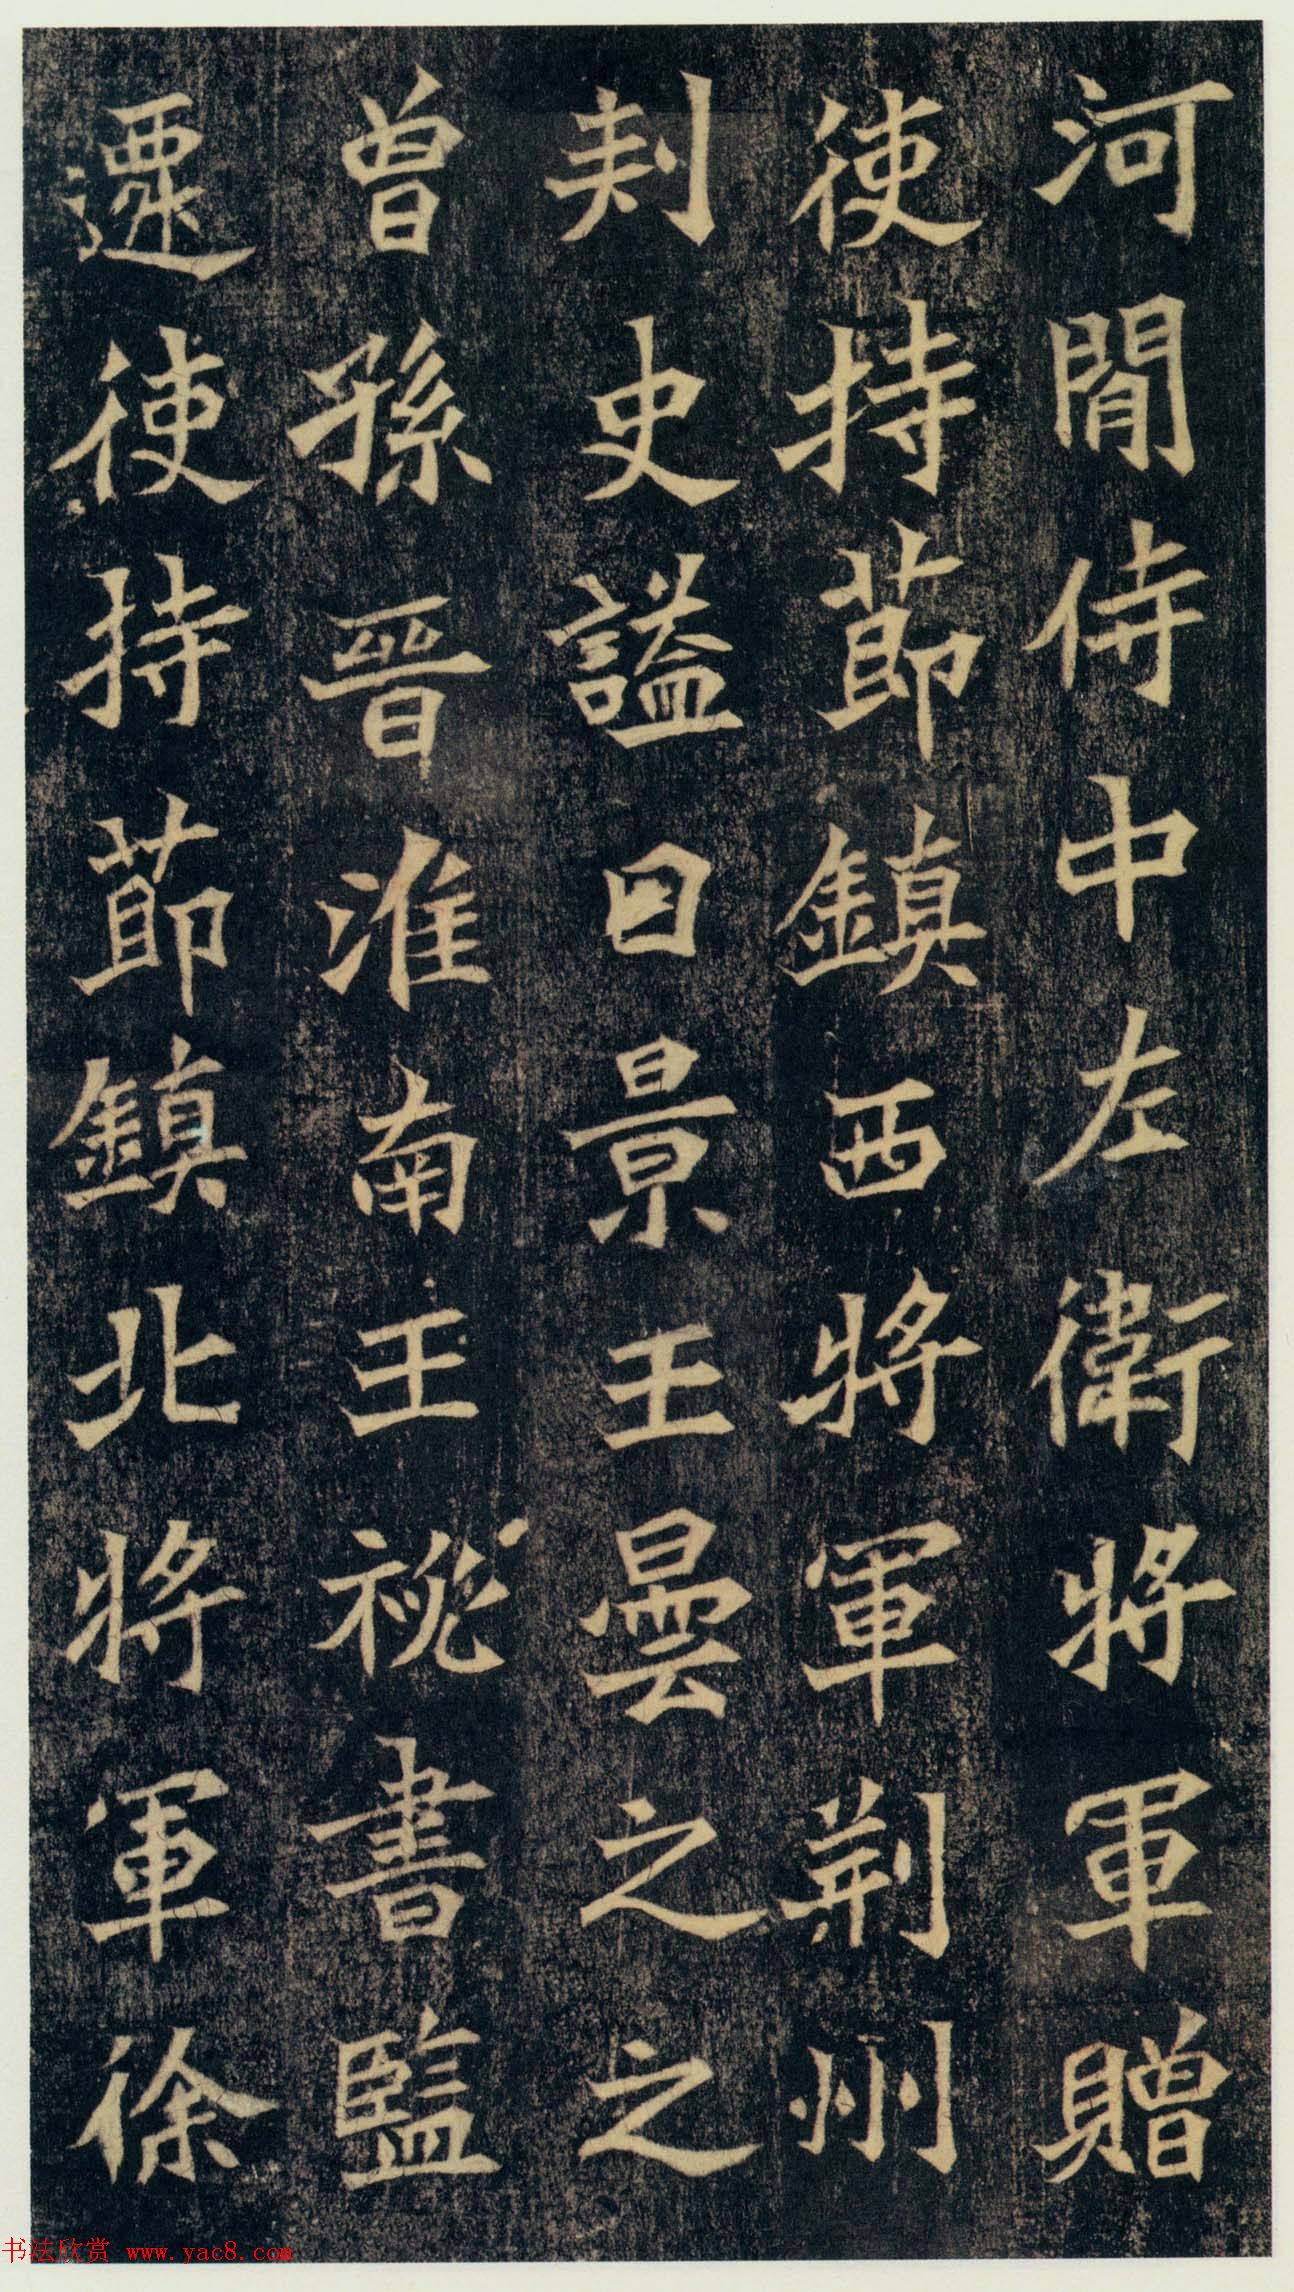 河間侍中左衛將軍贈
使持節鎮西將軍荊州
刾史謚曰景王曇之之
曾孫晉淮南王祕書監
遷使持節鎮北將軍徐
书法欣赏 www.yac8.com